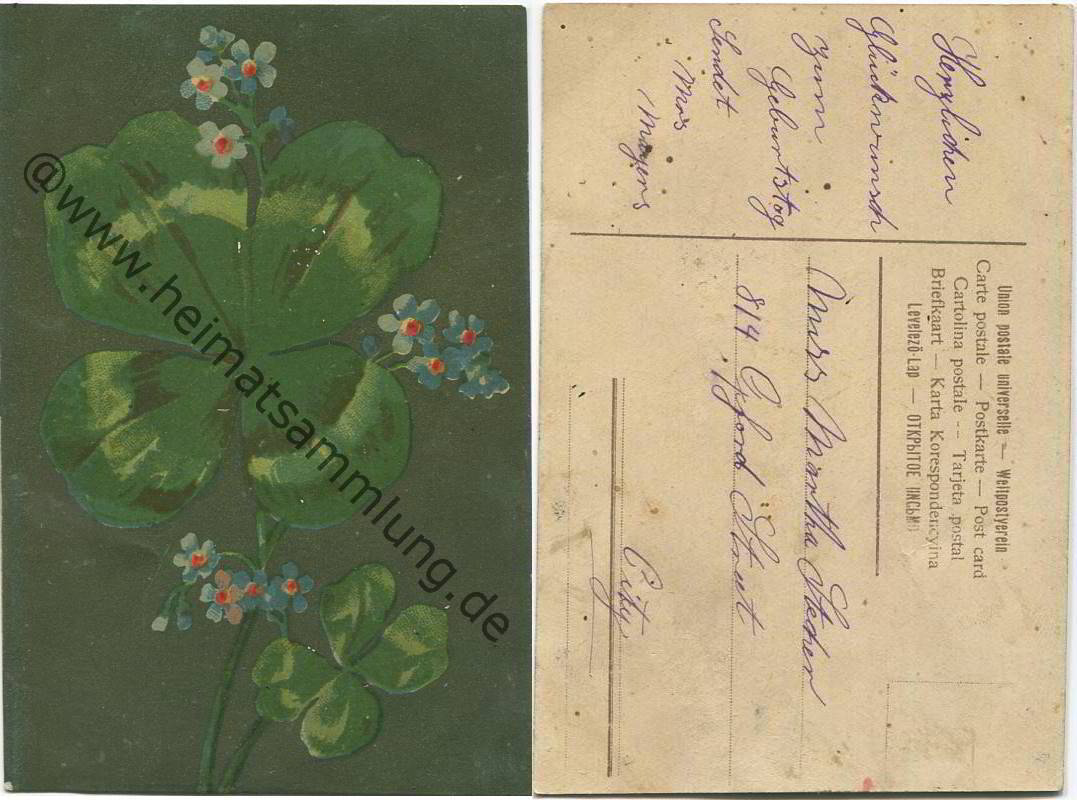 @www.heimatsammlung.de
Herzlichen
Glückwunsch
zum
Geburtstag
Sendet
Mrs
Mayers
Union postale universelle — Weltpostverein
Carte postale — Postkarte — Post card
Cartolina postale -- Tarjeta postal
Briefkaart — Karta Korespondencyjna
Levelezö-Lap — ОТКРЫТОЕ ПИСЬМО
Mrs Martha Stecher
814 Oxford Street
City